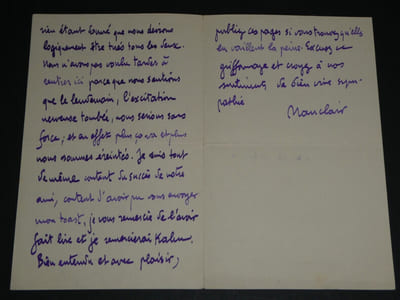 rien étant donné que nous devions
logiquement être tués tous les deux.
Nous n'avons pas voulu tarder à
rentrer ici parce que nous sentions
que le lendemain, l'excitation
nerveuse tombée, nous serions sans
force; et en effet plus ça va et plus
nous sommes éreintés. Je suis tout
de même content du succès de notre
ami, content d'avoir pu vous envoyer
mon toast, je vous remercie de l'avoir
fait lire et je remercierai Kahn.
Bien entendu et avec plaisir,
publiez ces pages si vous trouvez qu'elles
en vaillent la peine. Excusez ce
griffonnage et croyez à nos
sentiments de bien vive sym-
pathie
Mauclair